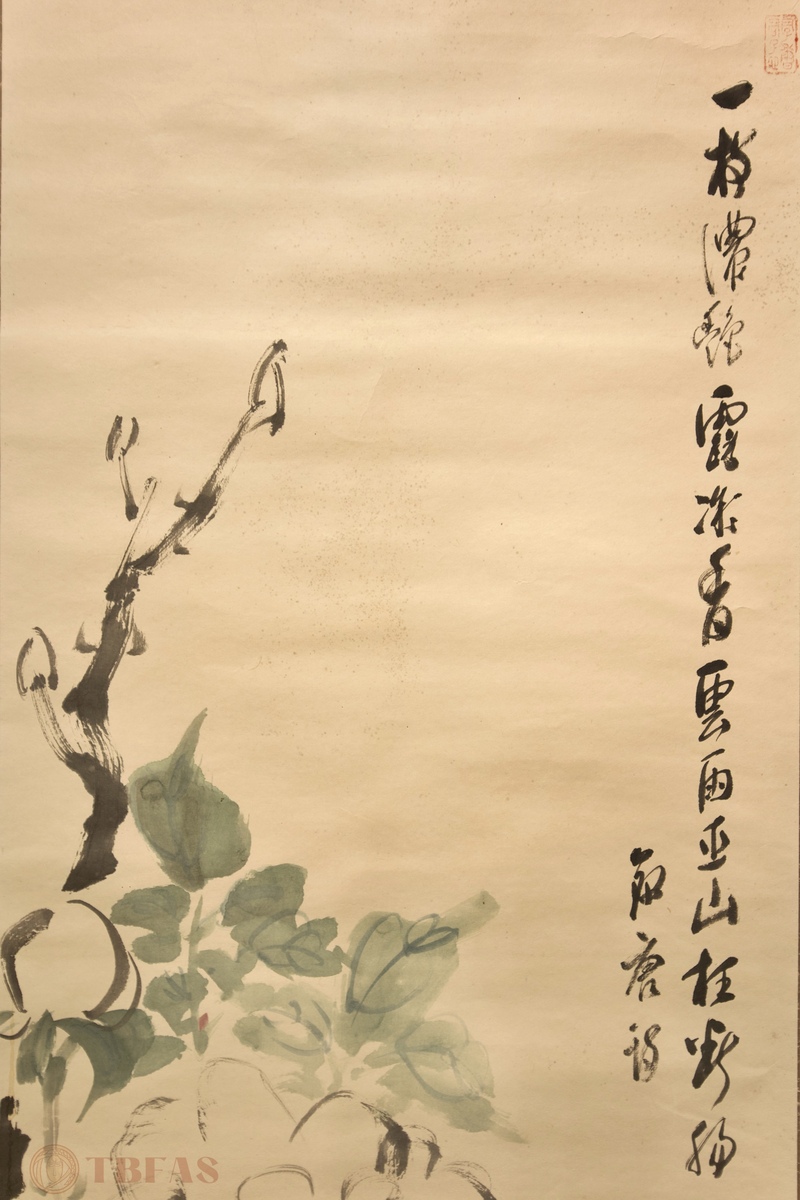 一枝濃艷露凝香雲雨巫山枉斷腸
敬唐詩
TBFAS